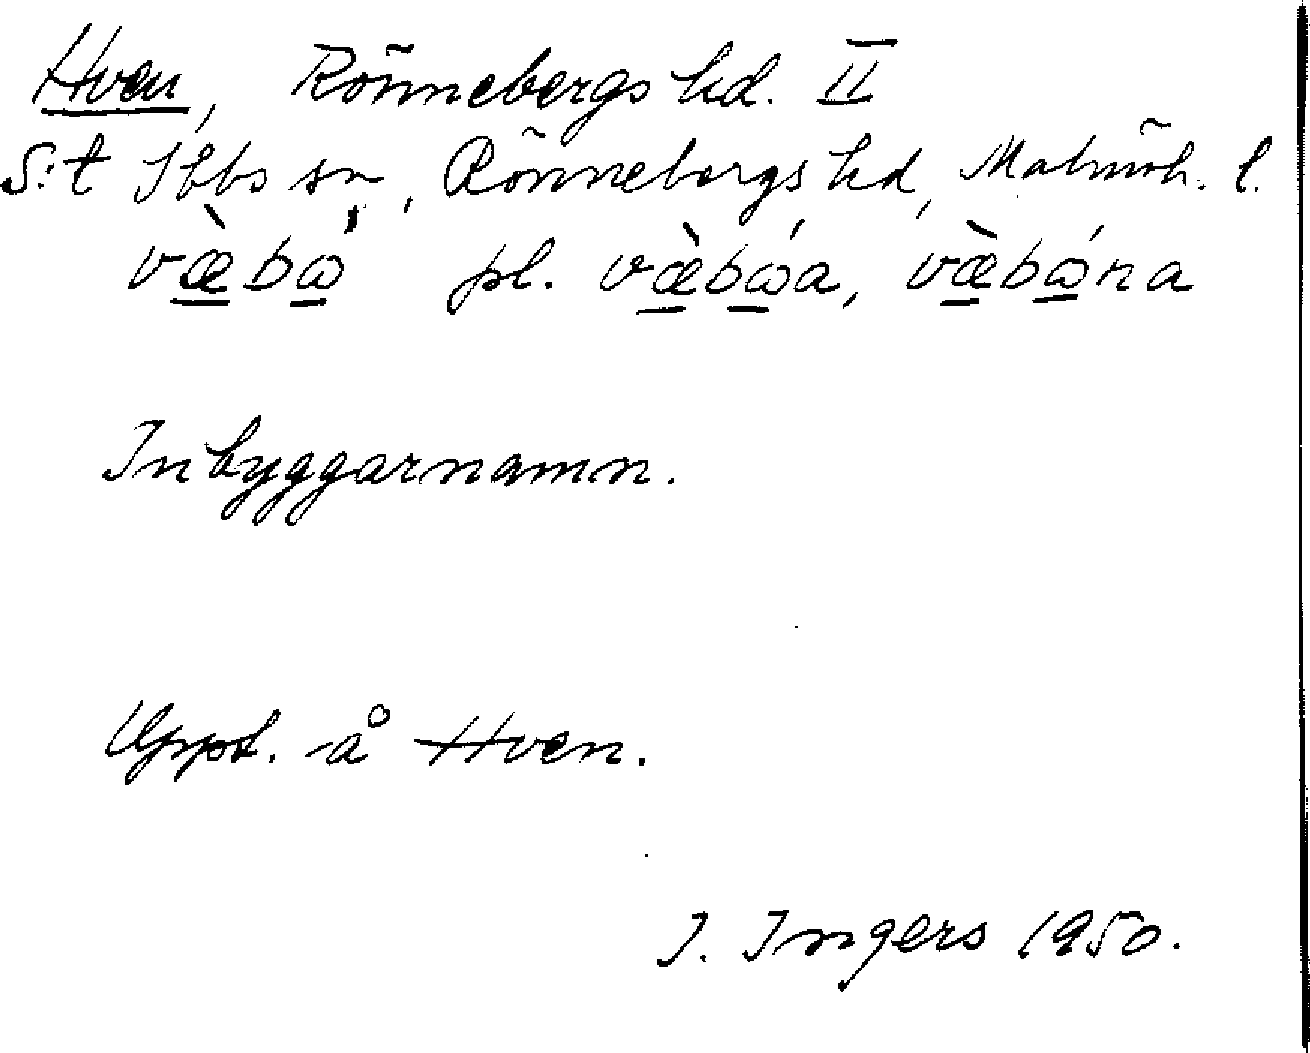 Hven, Rönnebergs hd. II
S:t Ibbs sn, Rönnebergs hd, Malmöh. l.
væ̀bώ pl. væ̀bώa, væ̀bώna
Inbyggarnamn.
Uppt. å Hven.
I. Ingers 1950.